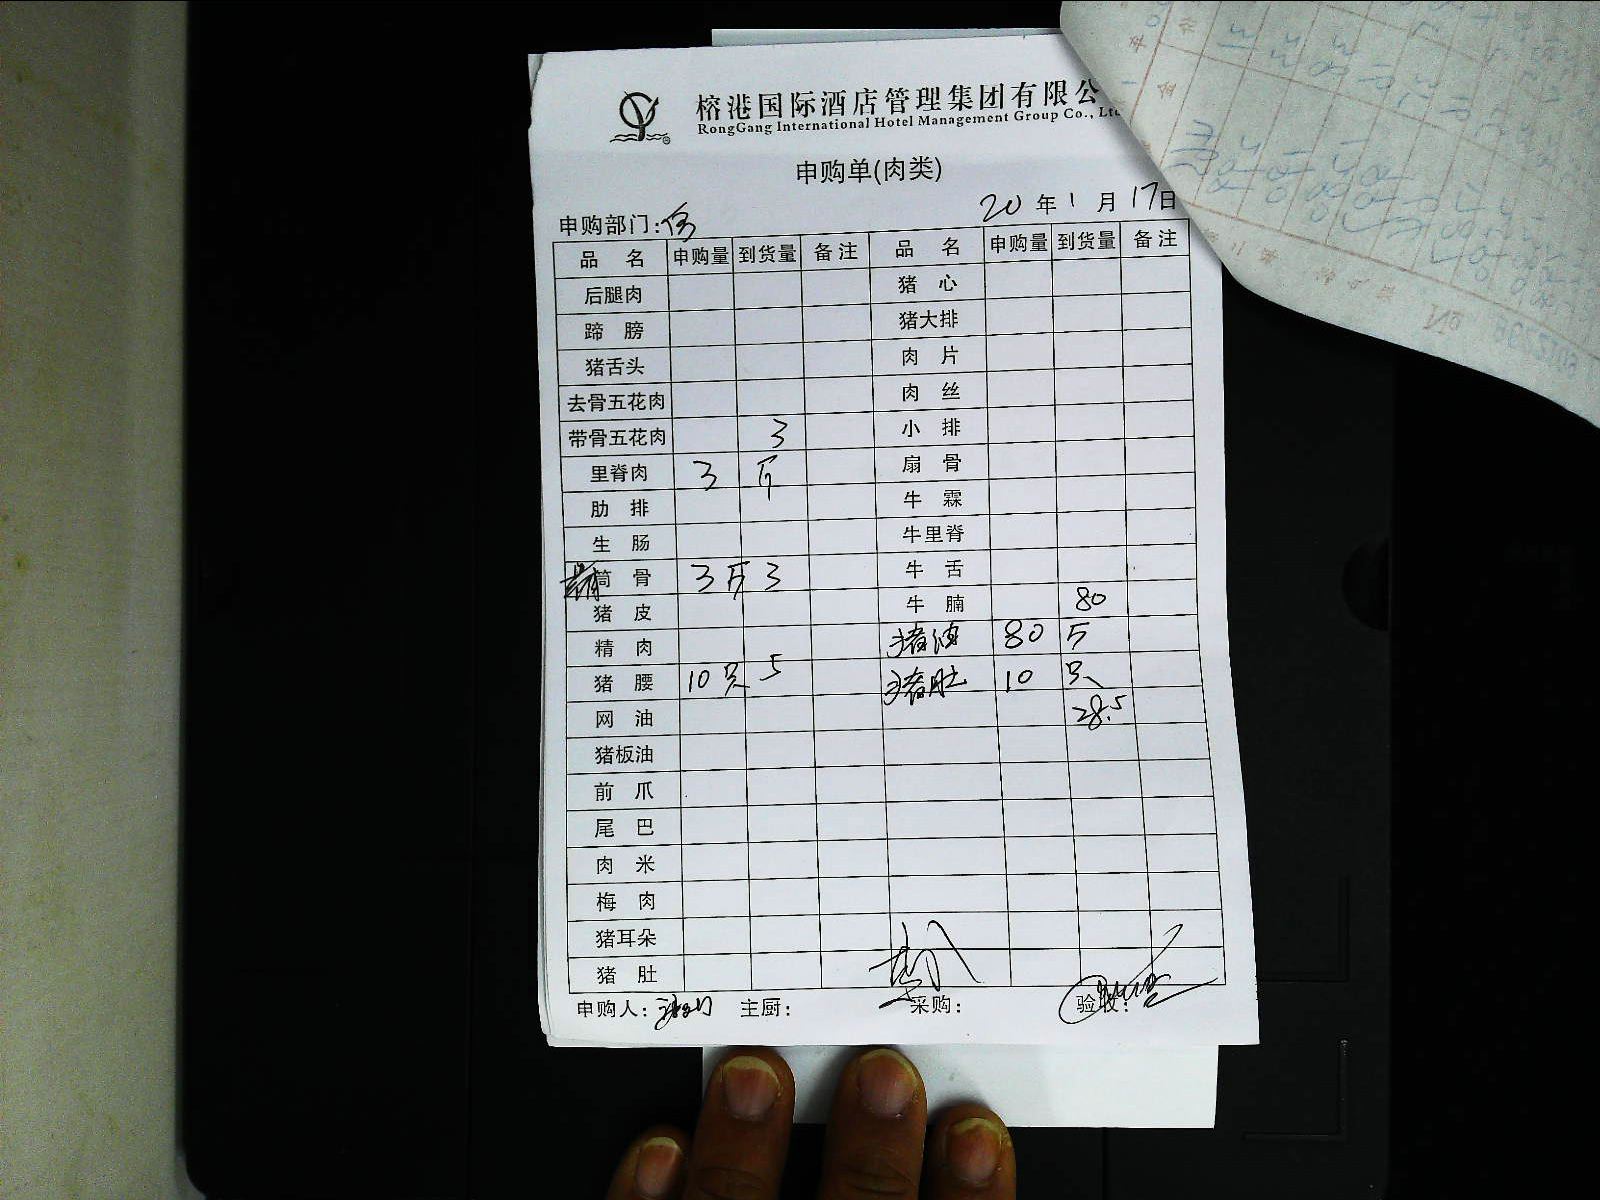 榕港国际酒店管理集团有限公
RongGang International Hotel Management Group Co., Ltd
申购单(肉类)
20 年 1 月 17 日
申购部门:
品 名 申购量 到货量 备注 品 名 申购量 到货量 备注
后腿肉 猪 心
蹄 膀 猪大排
猪舌头 肉 片
去骨五花肉 肉 丝
带骨五花肉 3 小 排
里脊肉 3 斤 扇 骨
肋 排 牛 霖
生 肠 牛里脊
筒 骨 3 斤 3 牛 舌
猪 皮 牛 腩 80
精 肉 猪油 80 斤
猪 腰 10 只 5 猪肚 10 只
网 油 28.5
猪板油
前 爪
尾 巴
肉 米
梅 肉
猪耳朵
猪 肚
申购人: 主厨: 采购: 验收: